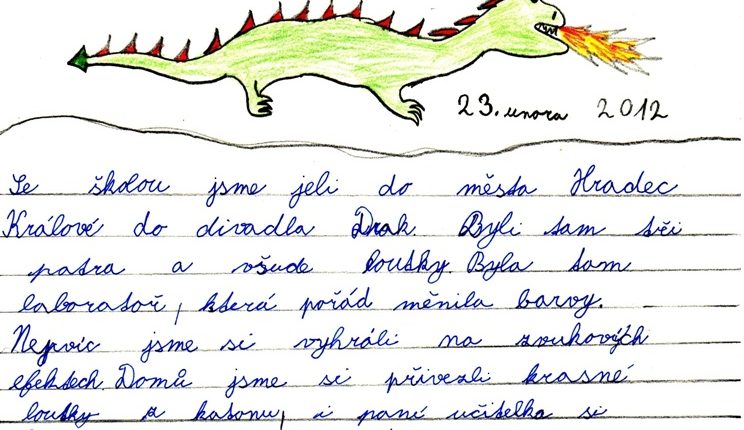 23. února 2012
Se školou jsme jeli do města Hradec
Králové do divadla Drak. Byli tam tři
patra a všude loutky. Byla tam
laboratoř, která pořád měnila barvy.
Nejvíc jsme si vyhráli na zvukových
efektech. Domů jsme si přivezli krasné
loutky z katonu, i paní učitelka si